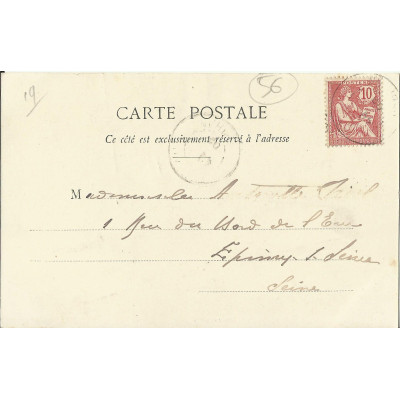 19
56
POSTES
10
CARTE POSTALE
Ce côté est exclusivement réservé à l'adresse
Mademoiselle
1 Rue du Bord de l'Eau
Epinay s. Seine
Seine